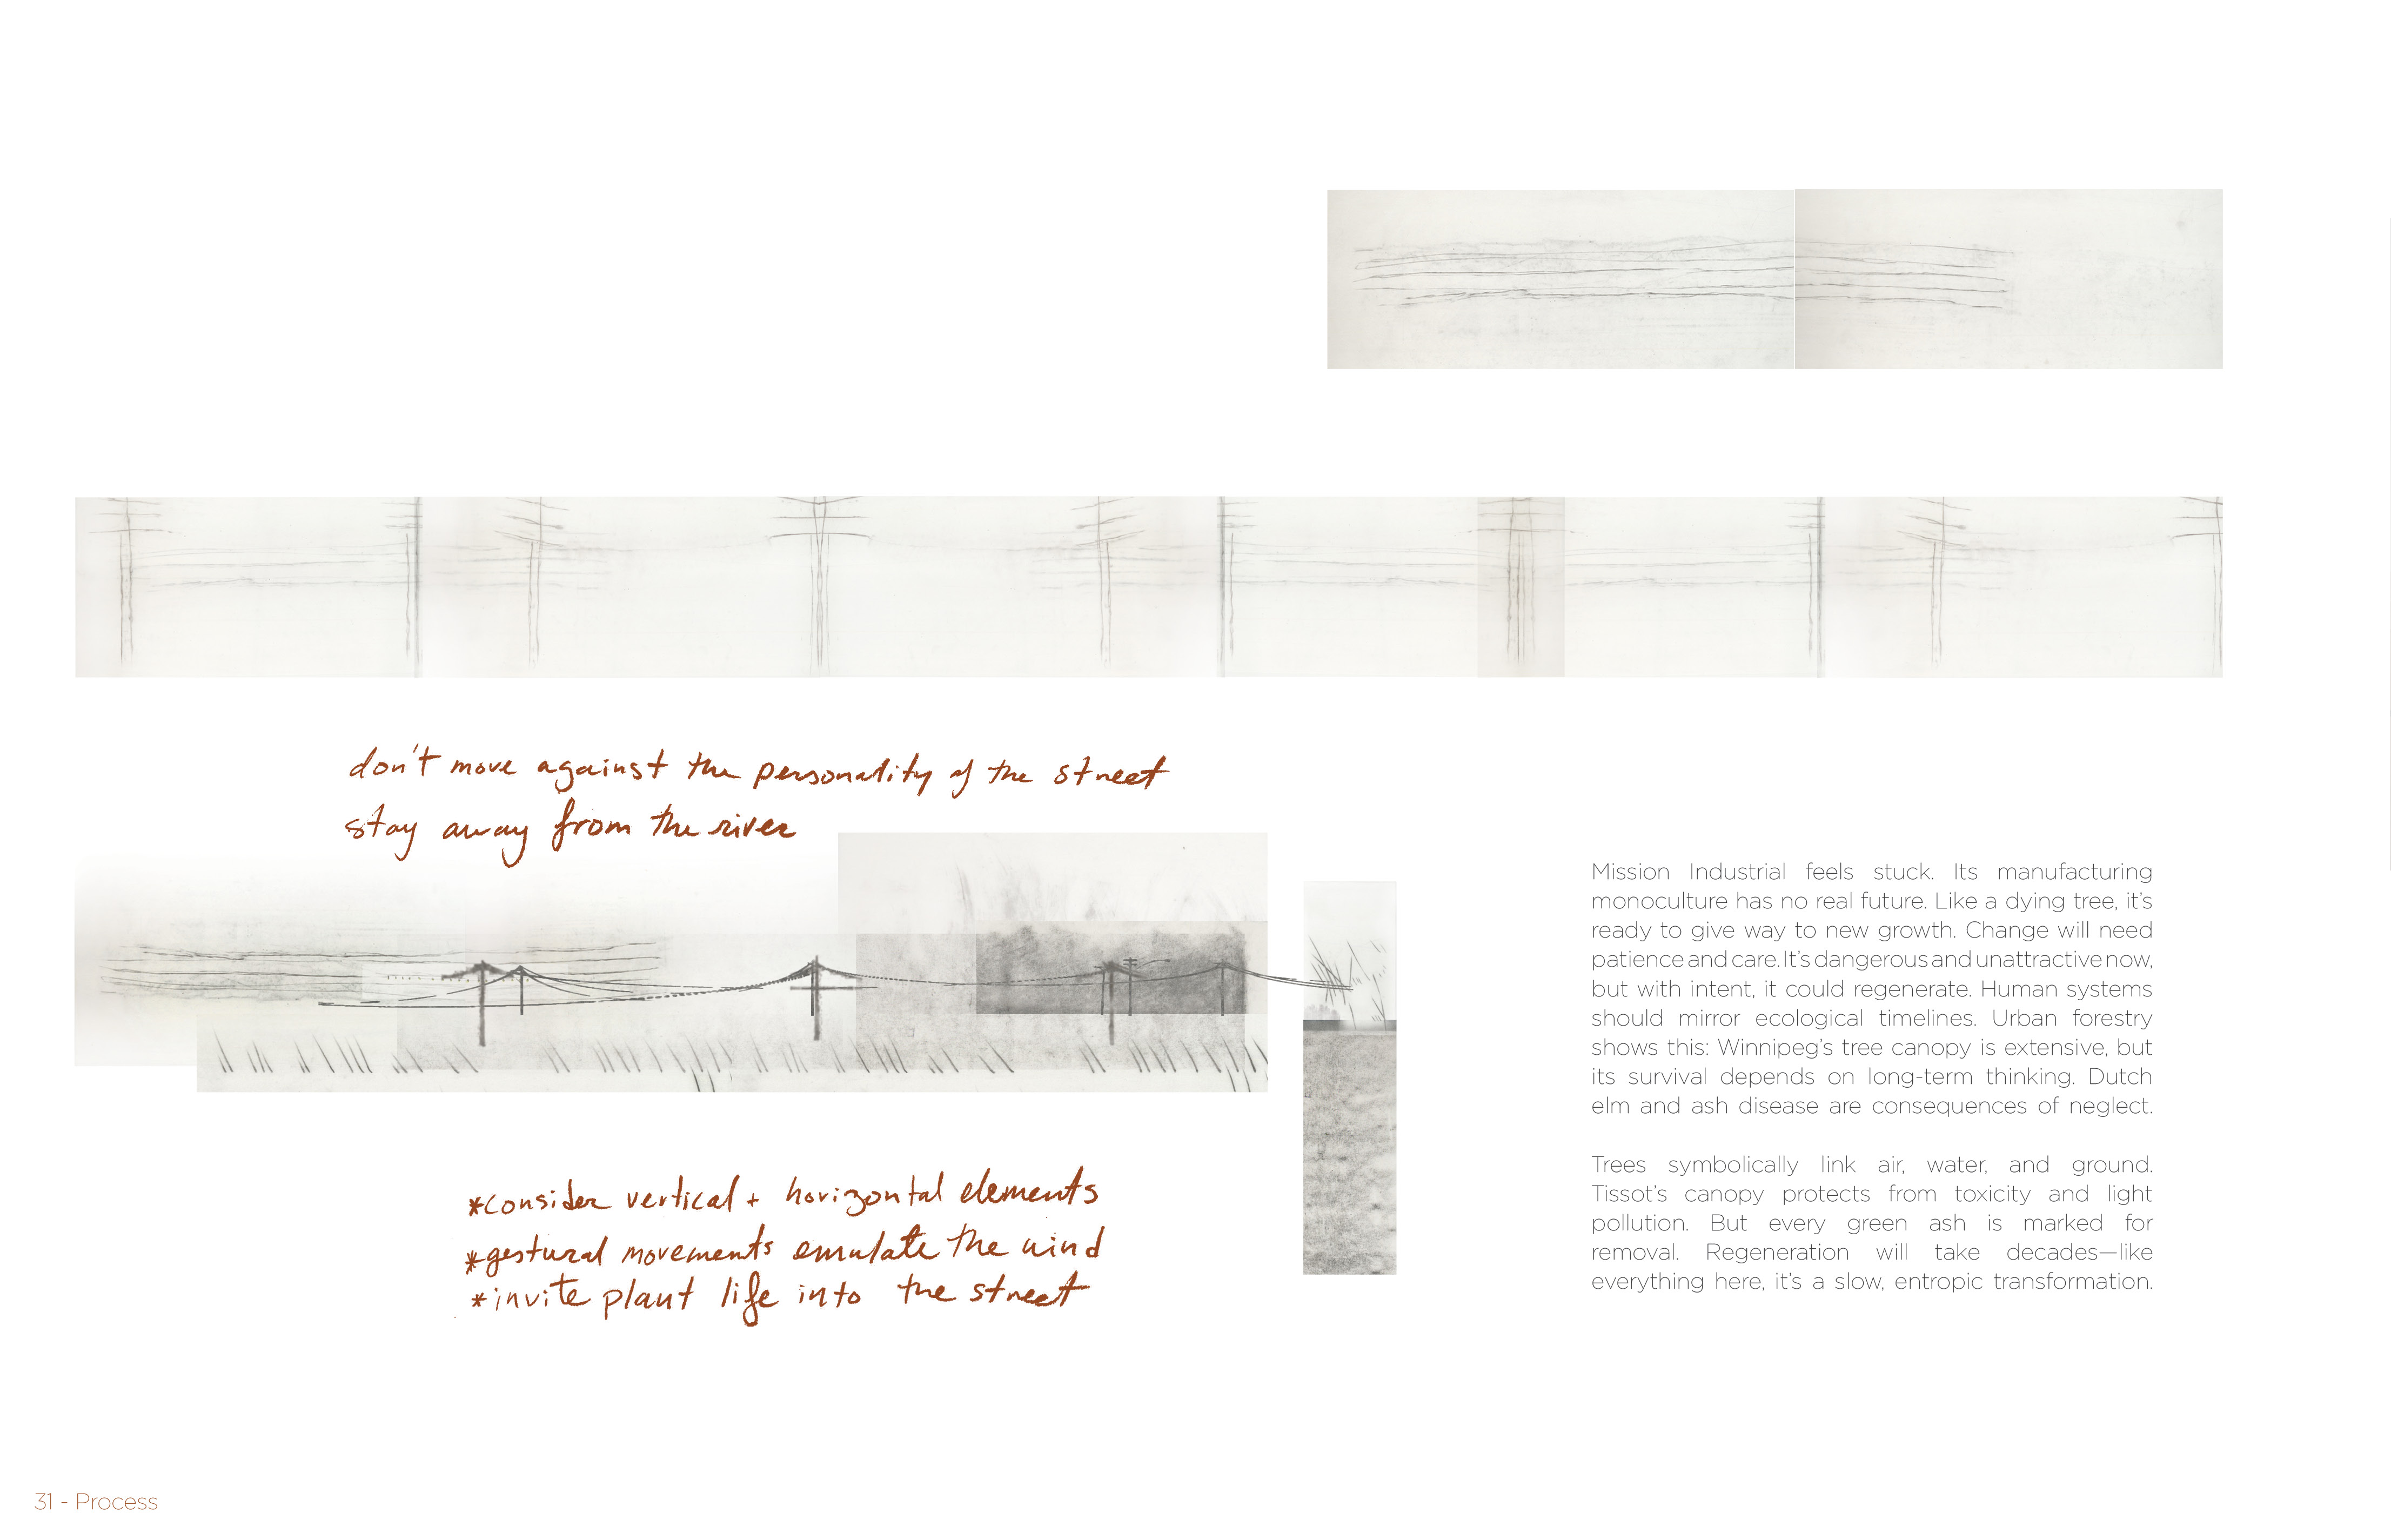 don't move against the personality of the street
stay away from the river
Mission Industrial feels stuck. Its manufacturing
monoculture has no real future. Like a dying tree, it's
ready to give way to new growth. Change will need
patience and care. It's dangerous and unattractive now,
but with intent, it could regenerate. Human systems
should mirror ecological timelines. Urban forestry
shows this: Winnipeg's tree canopy is extensive, but
its survival depends on long-term thinking. Dutch
elm and ash disease are consequences of neglect.
Trees symbolically link air, water, and ground.
Tissot's canopy protects from toxicity and light
pollution. But every green ash is marked for
removal. Regeneration will take decades—like
everything here, it's a slow, entropic transformation.
*consider vertical + horizontal elements
*gestural movements emulate the wind
*invite plant life into the street
31 - Process